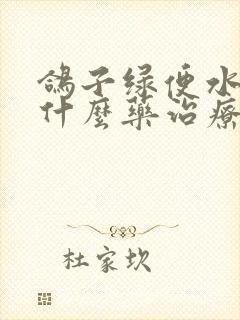 鴿子綠便水便
什麼藥治療
杜家坎